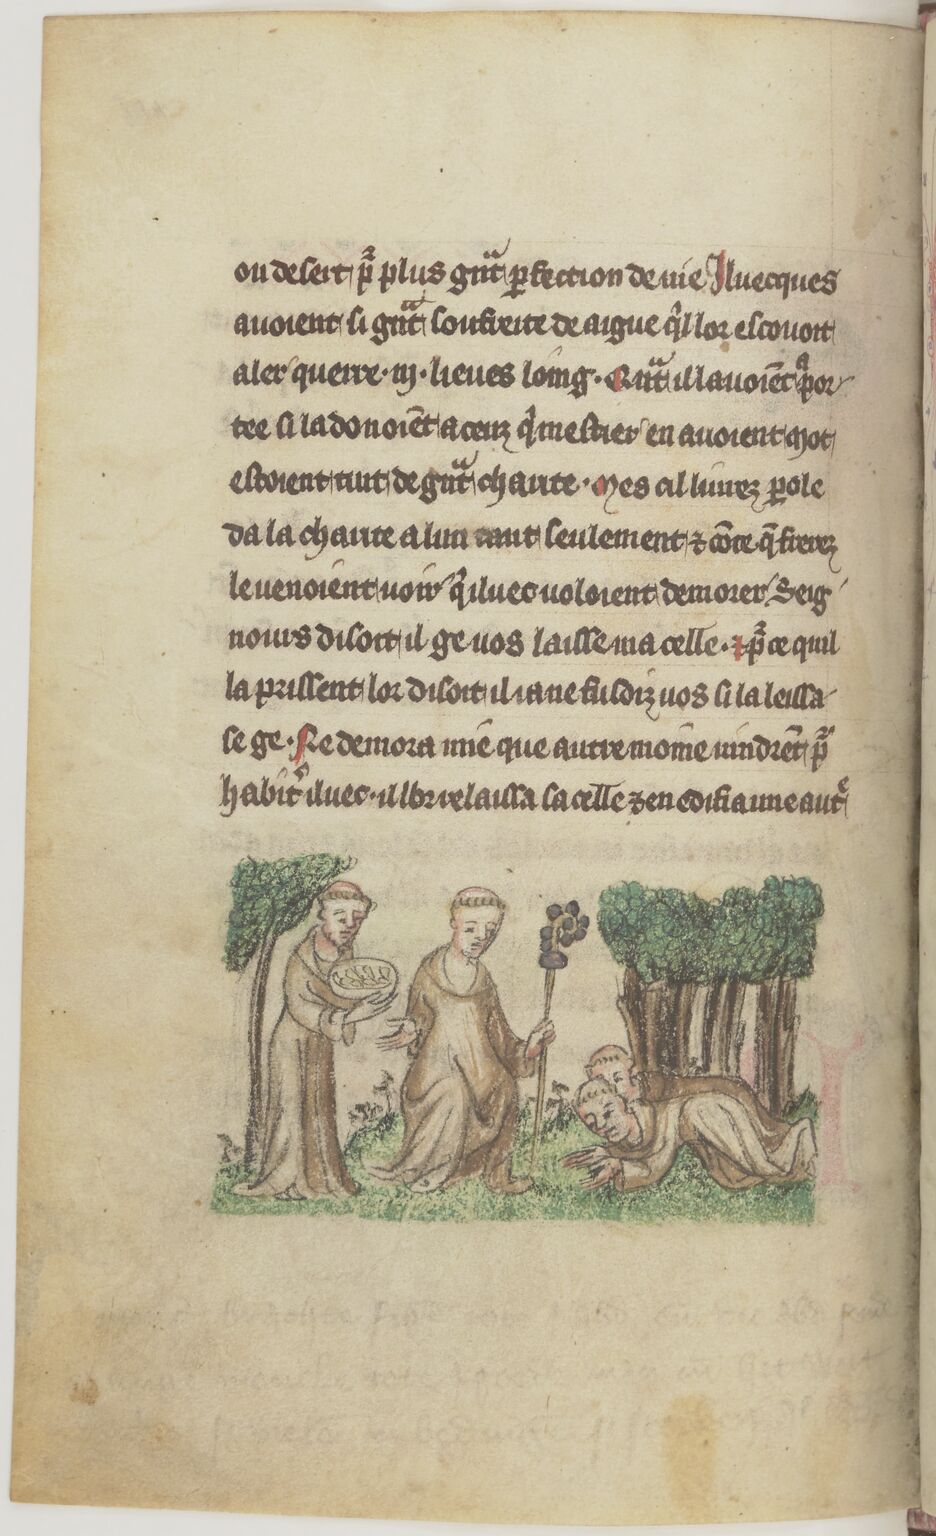 ou desert pʳ plus gᵃnt ꝑfection de uie Iluecques
auoient si gᵃnt soufreite de aigue qⁱl lor escouoit
aler querre · iij · lieues loing · Qᵃnt il lauoiēt apor
tee si la donoiēt a ceuz qⁱ mestier en auoient Mot
estoient tuit de gᵃnt charite · Mes cil liurez ꝑole
da la charite a lun tant seulement ⁊ cōte q̄ frerez
le uenoient uoir qⁱ iluec uoloient demorer Seig
nours disoit il ge uos laisse ma celle · ⁊ pʳ ce quil
la prissent lor disoit il ia ne fusdiz uos si la leissa
se ge · Ne demora mie que autre moine uindrēt pʳ
habitʳ iluec · il lor relaissa sa celle ⁊ en edifia une autᵉ